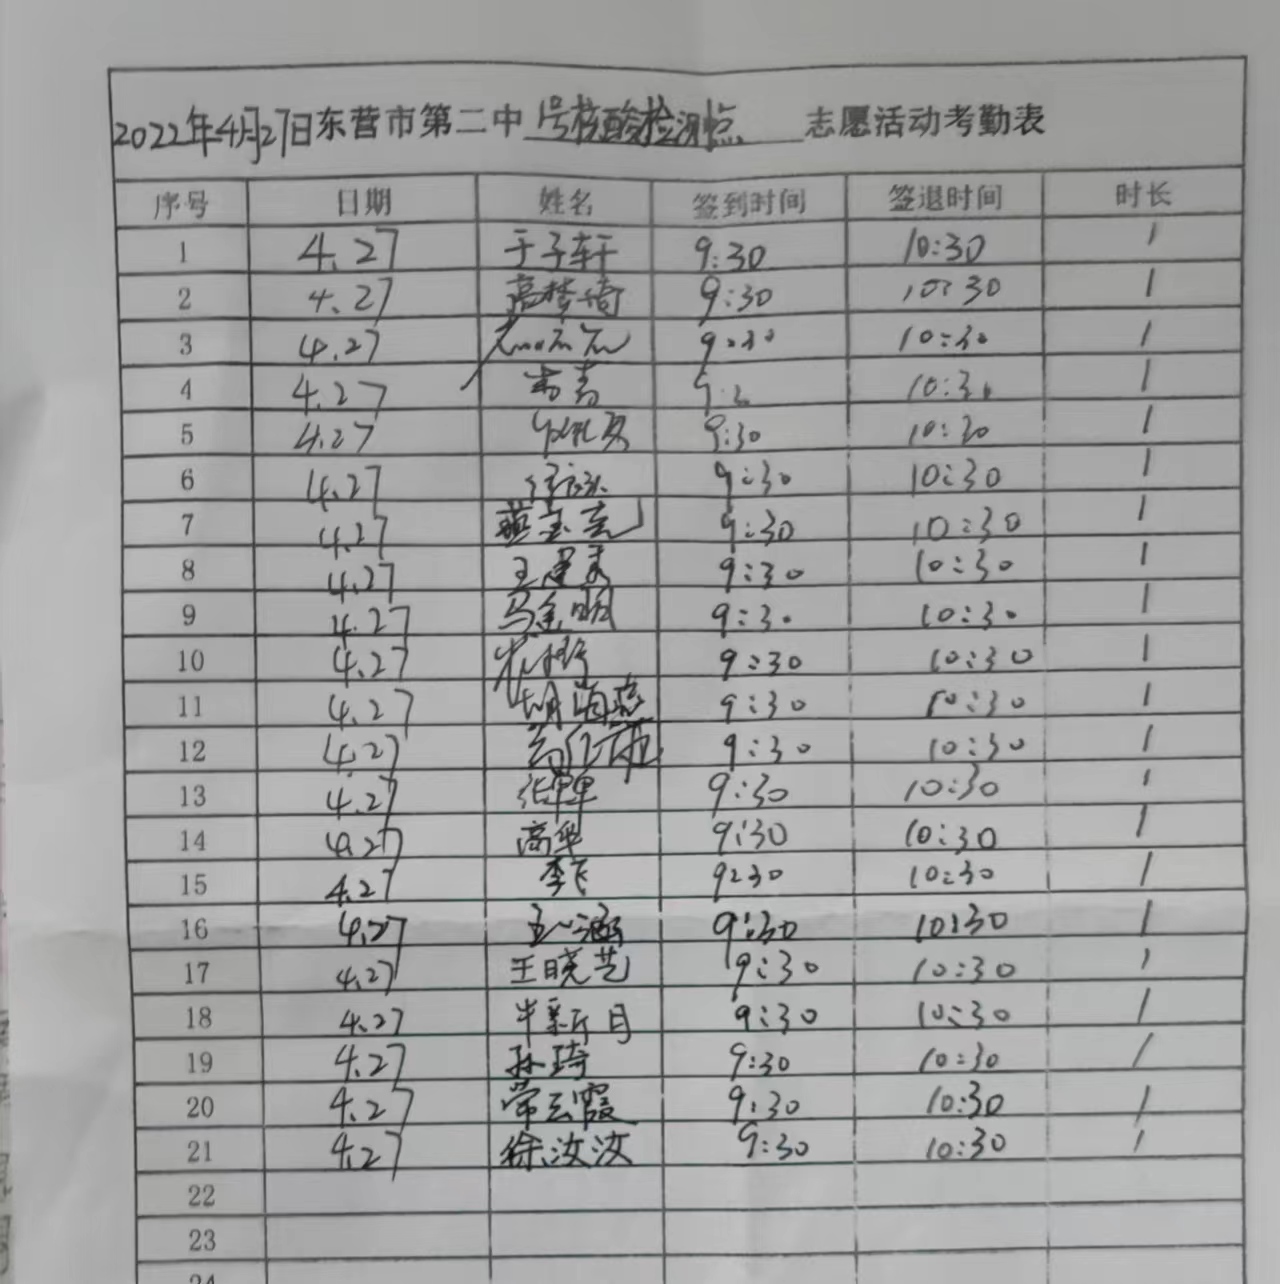 2022年4月27日东营市第二中1号核酸检测点 志愿活动考勤表
序号 日期 姓名 签到时间 签退时间 时长
1 4.27 于子轩 9:30 10:30 1
2 4.27 高梦琦 9:30 10:30 1
3 4.27 9:30 10:30 1
4 4.27 10:30 1
5 4.27 9:30 10:30 1
6 4.27 9:30 10:30 1
7 4.27 9:30 10:30 1
8 4.27 9:30 10:30 1
9 4.27 9:30 10:30 1
10 4.27 9:30 10:30 1
11 4.27 9:30 10:30 1
12 4.27 9:30 10:30 1
13 4.27 9:30 10:30 1
14 4.27 高华 9:30 10:30 1
15 4.27 李飞 9:30 10:30 1
16 4.27 9:30 10:30 1
17 4.27 王晓艺 9:30 10:30 1
18 4.27 牛新月 9:30 10:30 1
19 4.27 孙琦 9:30 10:30 1
20 4.27 常云霞 9:30 10:30 1
21 4.27 徐汝汝 9:30 10:30 1
22
23
24